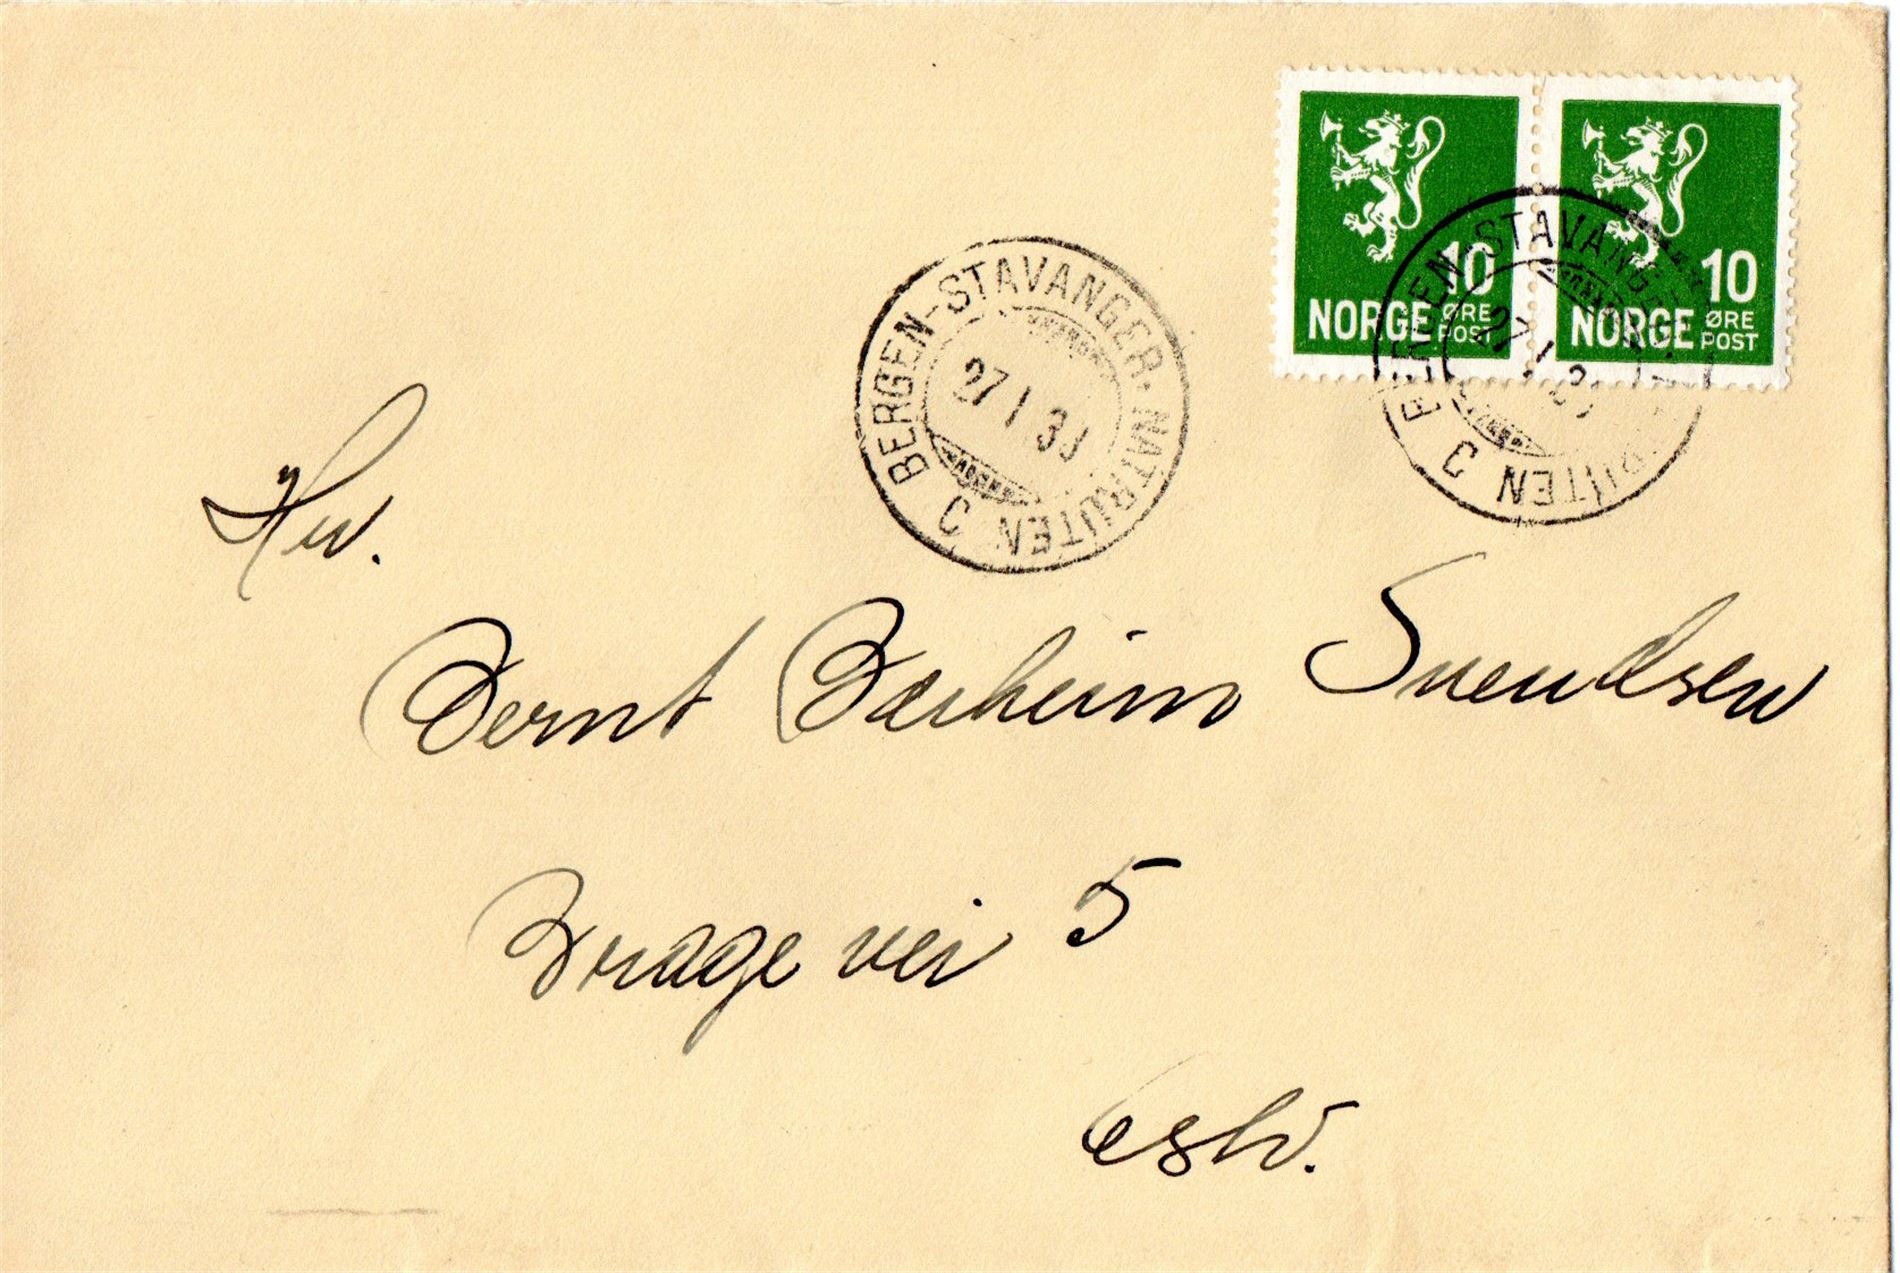 10
NORGE ØRE POST
10
NORGE ØRE POST
BERGEN-STAVANGER. NATRUTEN C
27 1 3
BERGEN-STAVANGER. NATRUTEN C
27 1 3
Hr.
Bernt Bærheim Svendsen
Drages vei 5
Oslo.